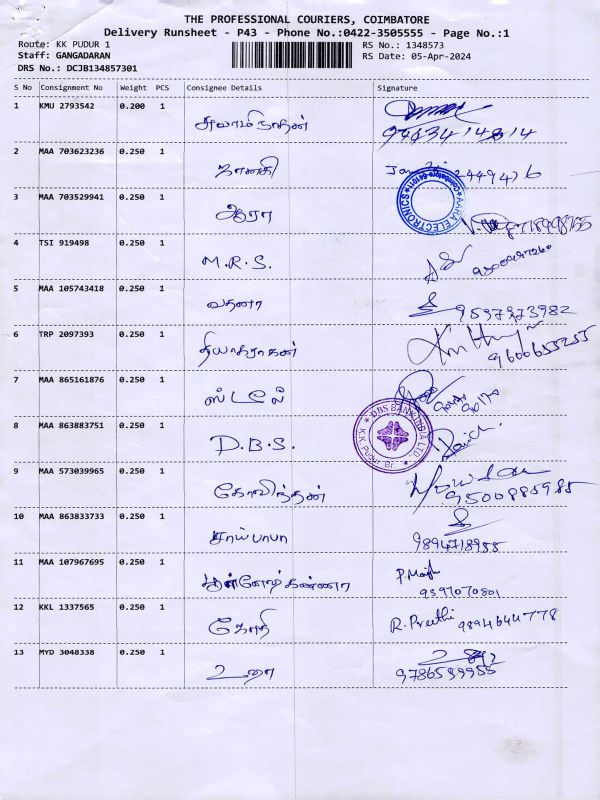 THE PROFESSIONAL COURIERS, COIMBATORE
Delivery Runsheet - P43 - Phone No.:0422-3505555 - Page No.:1
Route: KK PUDUR 1 RS No.: 1348573
Staff: GANGADARAN RS Date: 05-Apr-2024
DRS No.: DCJB134857301
S No Consignment No Weight PCS Consignee Details Signature
1 KMU 2793542 0.200 1 சுவாமிநாதன்
2 MAA 703623236 0.250 1 ஜானகி
3 MAA 703529941 0.250 1 ஆரா
AARA ELECTRONICS
4 TSI 919498 0.250 1 M.R.S.
5 MAA 105743418 0.250 1 வதனா 9597373982
6 TRP 2097393 0.250 1 தியாகராகன் 9600655255
7 MAA 865161876 0.250 1 ஸ்டீல்
8 MAA 863883751 0.250 1 D.B.S.
DBS BANK INDIA LTD K.K. Pudur Br.
9 MAA 573039965 0.250 1 கோவிந்தன் 9500885985
10 MAA 863833733 0.250 1 சாய்பாபா 9894718955
11 MAA 107967695 0.250 1 9597070801
12 KKL 1337565 0.250 1 கோதி R. Preethi 9894644778
13 MYD 3048338 0.250 1 உஷா 9786599955